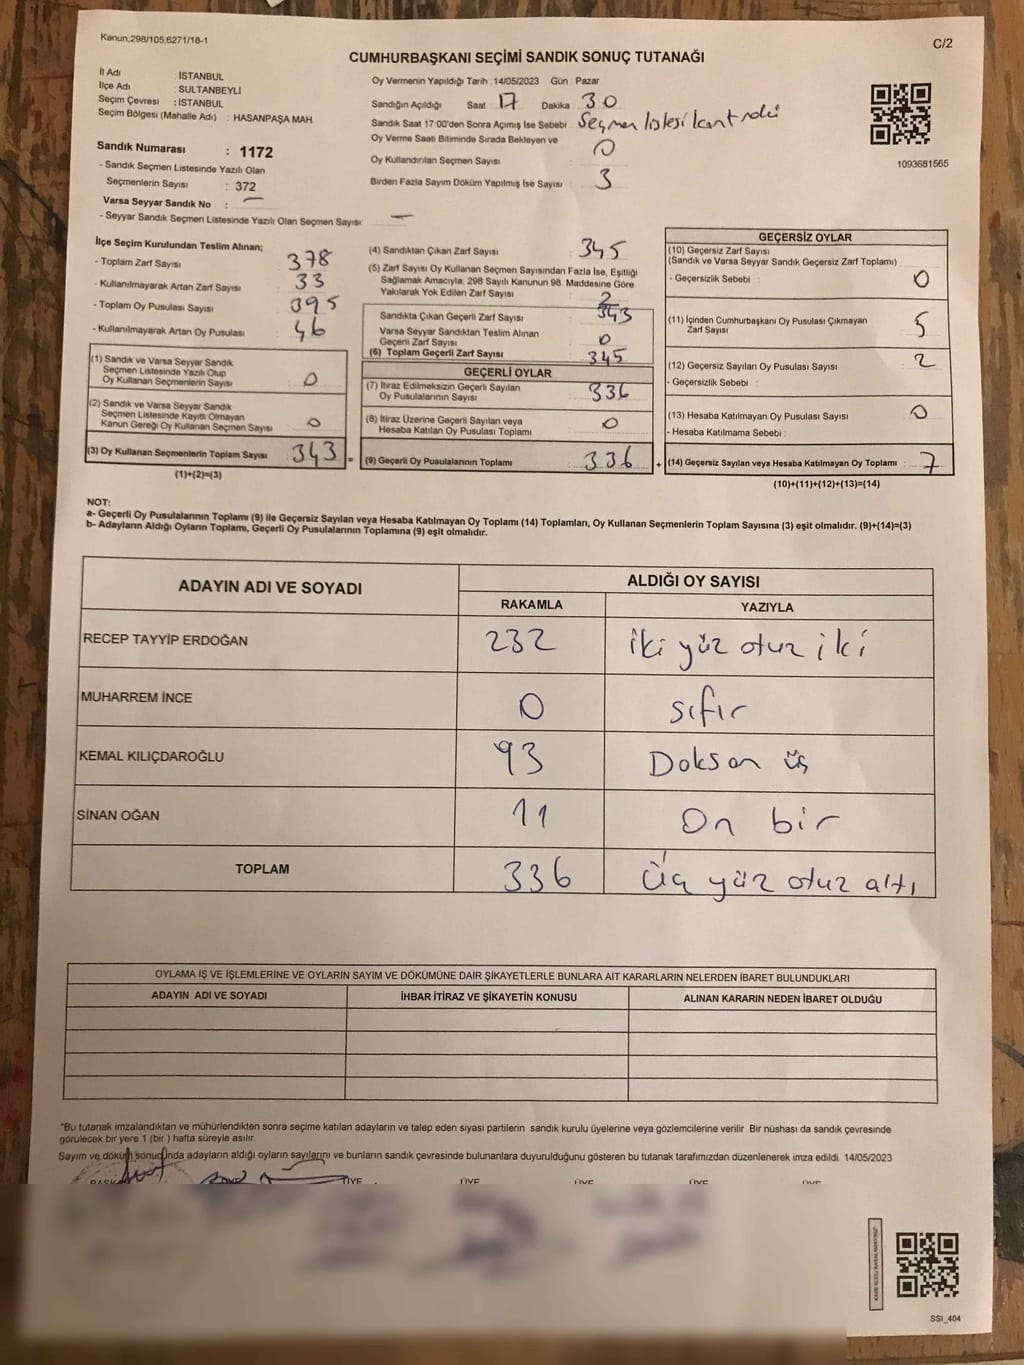 Kanun;298/105;6271/18-1
C/2
CUMHURBAŞKANI SEÇİMİ SANDIK SONUÇ TUTANAĞI
İl Adı : İSTANBUL
İlçe Adı : SULTANBEYLİ
Seçim Çevresi : İSTANBUL
Seçim Bölgesi (Mahalle Adı) : HASANPAŞA MAH.
Sandık Numarası : 1172
- Sandık Seçmen Listesinde Yazılı Olan
Seçmenlerin Sayısı : 372
Varsa Seyyar Sandık No : —
- Seyyar Sandık Seçmen Listesinde Yazılı Olan Seçmen Sayısı: —
Oy Vermenin Yapıldığı Tarih :14/05/2023 Gün : Pazar
Sandığın Açıldığı Saat : 17 Dakika : 30
Sandık Saat 17:00'den Sonra Açımış İse Sebebi : Seçmen listesi kontrolü
Oy Verme Saati Bitiminde Sırada Bekleyen ve
Oy Kullandırılan Seçmen Sayısı : 0
Birden Fazla Sayım Döküm Yapılmış İse Sayısı : 3
1093681565
İlçe Seçim Kurulundan Teslim Alınan;
- Toplam Zarf Sayısı : 378
- Kullanılmayarak Artan Zarf Sayısı : 33
- Toplam Oy Pusulası Sayısı : 395
- Kullanılmayarak Artan Oy Pusulası : 46
(1) Sandık ve Varsa Seyyar Sandık
Seçmen Listesinde Yazılı Olup
Oy Kullanan Seçmenlerin Sayısı : 0
(2) Sandık ve Varsa Seyyar Sandık
Seçmen Listesinde Kayıtlı Olmayan
Kanun Gereği Oy Kullanan Seçmen Sayısı : 0
(3) Oy Kullanan Seçmenlerin Toplam Sayısı : 343 =
(1)+(2)=(3)
(4) Sandıktan Çıkan Zarf Sayısı : 345
(5) Zarf Sayısı Oy Kullanan Seçmen Sayısından Fazla İse, Eşitliği
Sağlamak Amacıyla, 298 Sayılı Kanunun 98. Maddesine Göre
Yakılarak Yok Edilen Zarf Sayısı : 2
Sandıkta Çıkan Geçerli Zarf Sayısı : 343
Varsa Seyyar Sandıktan Teslim Alınan
Geçerli Zarf Sayısı : 0
(6) Toplam Geçerli Zarf Sayısı : 345
GEÇERLİ OYLAR
(7) İtiraz Edilmeksizin Geçerli Sayılan
Oy Pusulalarının Sayısı : 336
(8) İtiraz Üzerine Geçerli Sayılan veya
Hesaba Katılan Oy Pusulası Toplamı : 0
(9) Geçerli Oy Pusulalarının Toplamı : 336 +
GEÇERSİZ OYLAR
(10) Geçersiz Zarf Sayısı
(Sandık ve Varsa Seyyar Sandık Geçersiz Zarf Toplamı) :
- Geçersizlik Sebebi : 0
(11) İçinden Cumhurbaşkanı Oy Pusulası Çıkmayan
Zarf Sayısı : 5
(12) Geçersiz Sayılan Oy Pusulası Sayısı : 2
- Geçersizlik Sebebi :
(13) Hesaba Katılmayan Oy Pusulası Sayısı : 0
- Hesaba Katılmama Sebebi :
(14) Geçersiz Sayılan veya Hesaba Katılmayan Oy Toplamı : 7
(10)+(11)+(12)+(13)=(14)
NOT:
a- Geçerli Oy Pusulalarının Toplamı (9) ile Geçersiz Sayılan veya Hesaba Katılmayan Oy Toplamı (14) Toplamları, Oy Kullanan Seçmenlerin Toplam Sayısına (3) eşit olmalıdır. (9)+(14)=(3)
b- Adayların Aldığı Oyların Toplamı, Geçerli Oy Pusulalarının Toplamına (9) eşit olmalıdır.
ADAYIN ADI VE SOYADI ALDIĞI OY SAYISI
RAKAMLA YAZIYLA
RECEP TAYYİP ERDOĞAN 232 iki yüz otuz iki
MUHARREM İNCE 0 sıfır
KEMAL KILIÇDAROĞLU 93 Doksan üç
SİNAN OĞAN 11 On bir
TOPLAM 336 Üç yüz otuz altı
OYLAMA İŞ VE İŞLEMLERİNE VE OYLARIN SAYIM VE DÖKÜMÜNE DAİR ŞİKAYETLERLE BUNLARA AİT KARARLARIN NELERDEN İBARET BULUNDUKLARI
ADAYIN ADI VE SOYADI İHBAR İTİRAZ VE ŞİKAYETİN KONUSU ALINAN KARARIN NEDEN İBARET OLDUĞU
*Bu tutanak imzalandıktan ve mühürlendikten sonra seçime katılan adayların ve talep eden siyasi partilerin sandık kurulu üyelerine veya gözlemcilerine verilir .Bir nüshası da sandık çevresinde
görülecek bir yere 1 (bir ) hafta süreyle asılır.
Sayım ve döküm sonucunda adayların aldığı oyların sayılarını ve bunların sandık çevresinde bulunanlara duyurulduğunu gösteren bu tutanak tarafımızdan düzenlenerek imza edildi. 14/05/2023
ÜYE ÜYE ÜYE ÜYE ÜYE
SSI_404